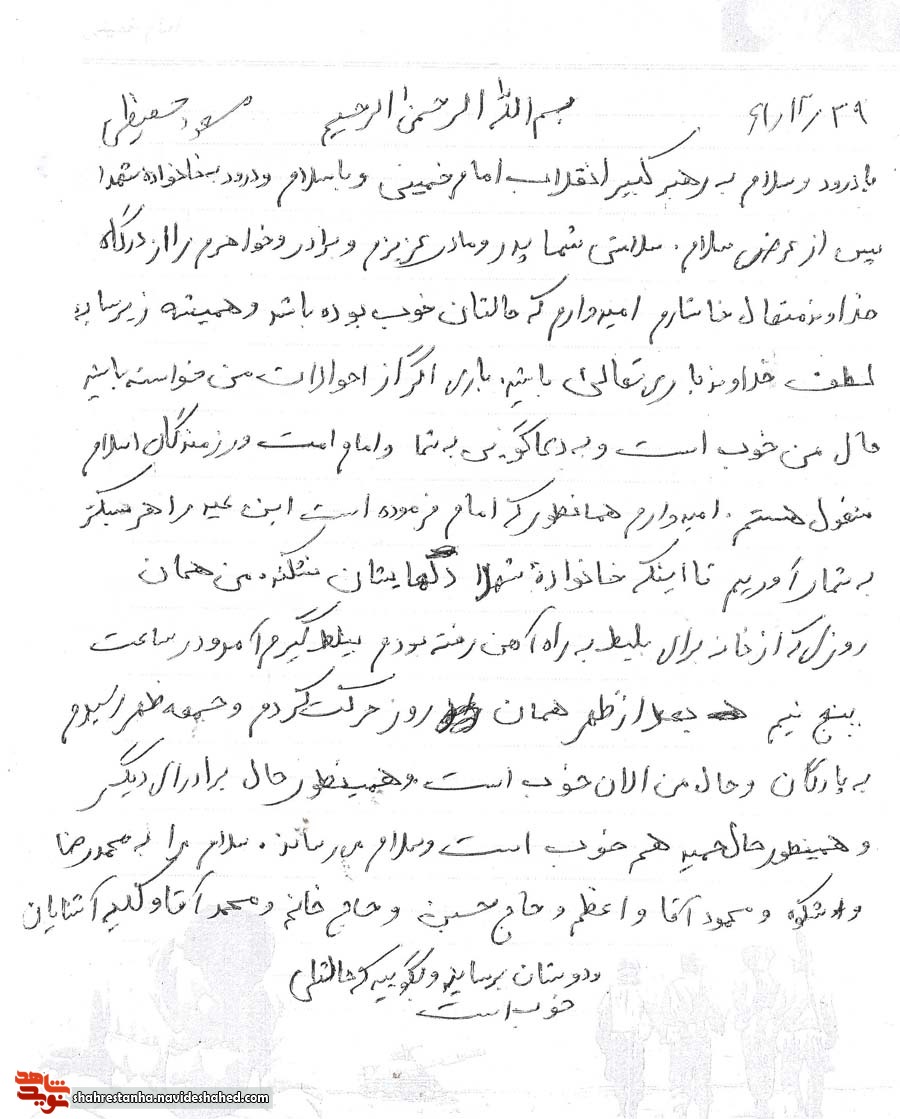 ۶۱/۱۲/۲۹ بسم الله الرحمن الرحیم مسعود حفیظی
با درود و سلام به رهبر کبیر انقلاب امام خمینی و با سلام و درود به خانخواده شهدا
پس از عرض سلام. سلامتی شما پدر و مادر عزیزم و برادر و خواهرم را از درگاه
خداوند متعال خاستارم امیدوارم که حالتان خوب بوده باشد و همیشه زیر سایه
لطف خداوند باری تعالی باشید. باری اگر از احوالات من خواسته باشید
حال من خوب است و به دعاگویی به شما و امام امت و رزمندگان اسلام
مشغول هستم. امیدوارم همانطور که امام فرموده است این عید را هر سبکتر
به شمار آوریم تا اینکه خانوادهٔ شهدا دلهایشان نشکند. من همان
روزی که از خانه برای بلیط به راه آهن رفته بودم بیلط گیرم آمد و در ساعت
پنج نیم بعد از ظهر همان روز حرکت کردم و جمعه ظهر رسیدم
به پادگان و حال من الان خوب است. و همینطور حال برادرای دیگر
و همینطور حال حمید هم خوب است و سلام می رساند. سلام مرا به محمدرضا
و شکوه و محمود آقا و اعظم و حاج حسین و حاج خانم و محمد آقا و کلیه آشنایان
و دوستان برسانید و بگویید که حالش
خوب است
نوید شاهد
shahrestanha.navideshahed.com